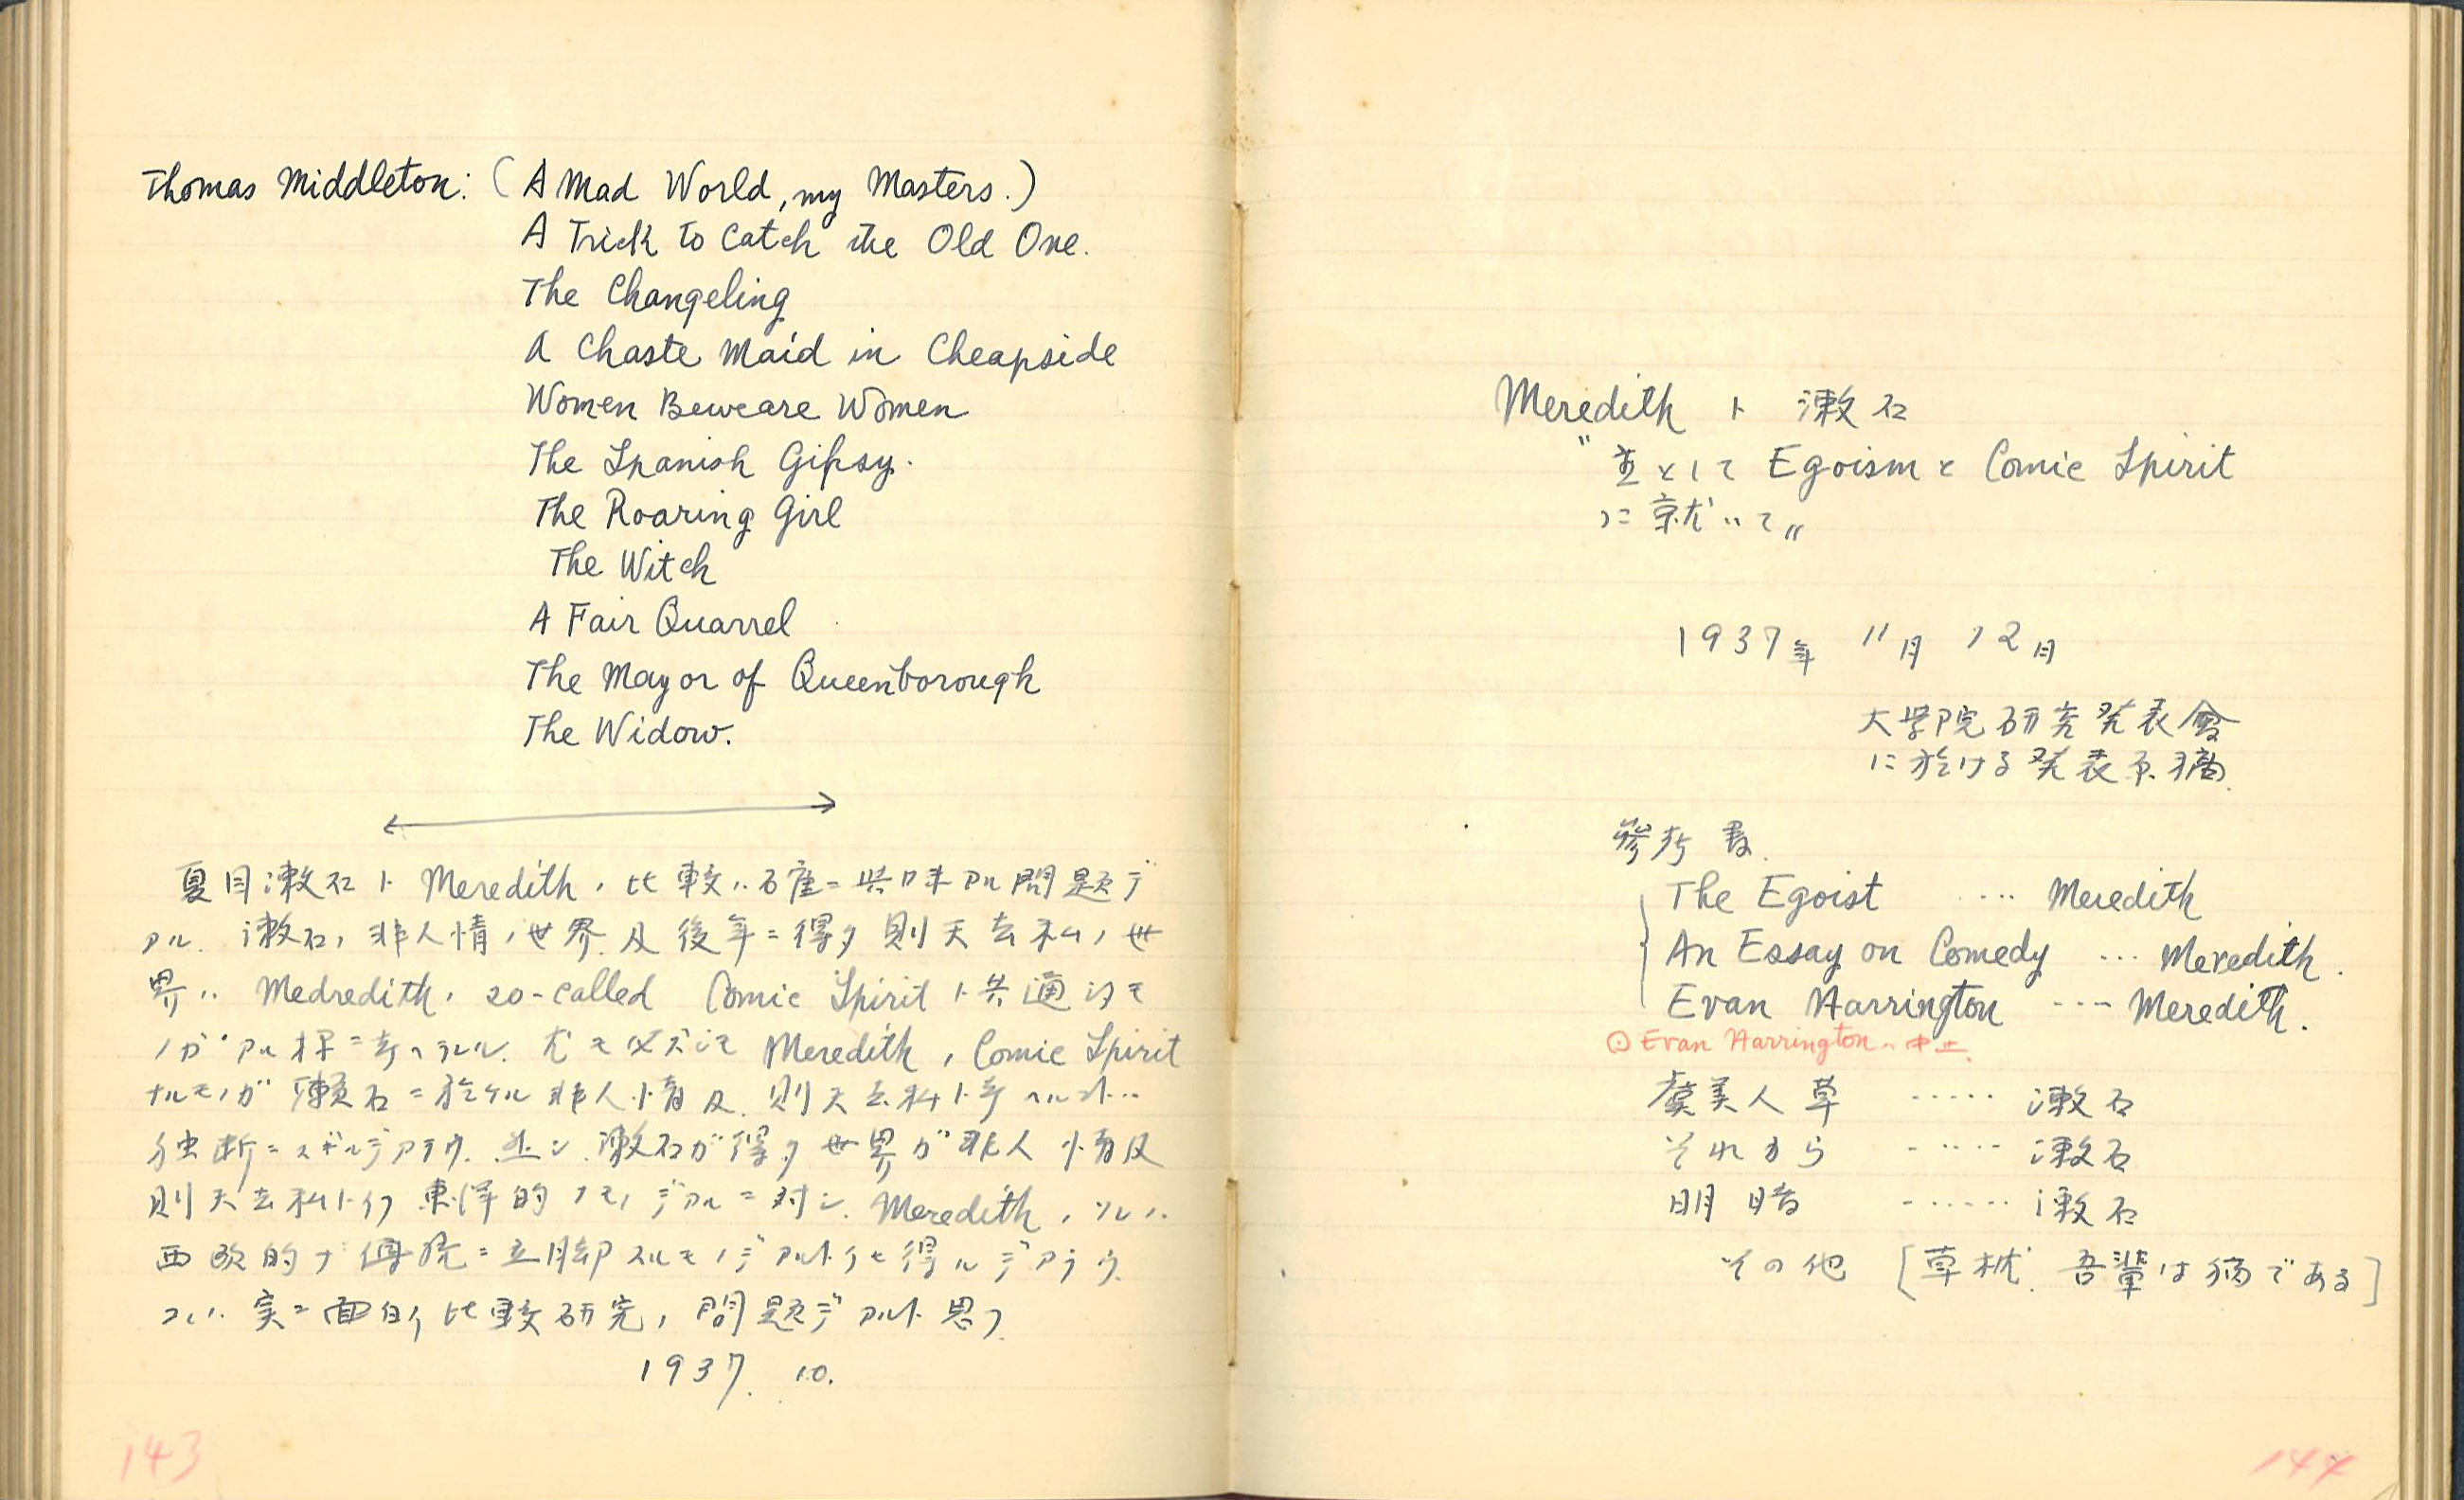 Thomas Middleton: (A Mad World, my Masters.)
A Trick to Catch the Old One.
The Changeling
A Chaste Maid in Cheapside
Women Beweare Women
The Spanish Gipsy.
The Roaring Girl
The Witch
A Fair Quarrel
The Mayor of Queenborough
The Widow.
夏目漱石ト Meredith ノ比較ハ確ニ興味アル問題デ
アル. 漱石ノ非人情ノ世界及後年ニ得タ則天去私ノ世
界ハ Medredith ノ so-called Comic Spirit ト共通ノモ
ノガアル様ニ考ヘラレル. 尤モ必ズシモ Meredith ノ Comic Spirit
ナルモノガ漱石ニ於ケル非人情及則天去私ト考ヘルコトハ
独断ニスギルデアラウ. 並シ漱石ガ得タ世界ガ非人情及
則天去私ト云フ東洋的ナモノデアルニ対シ. Meredith ノソレハ
西欧的ナ伝統ニ立脚スルモノデアルト云ヒ得ルデアラウ.
コレハ実ニ面白イ比較研究ノ問題デアルト思フ.
1937. 10.
143
Meredith ト 漱石
"主として Egoism と Comic Spirit
に就いて"
1937年 11月 12日
大学院研究発表會
に於ける発表原稿.
參考書.
The Egoist ... Meredith
An Essay on Comedy ... Meredith.
Evan Harrington ---- Meredith.
⊙ Evan Harrington ハ中止.
虞美人草 ..... 漱石
それから ..... 漱石
明暗 ...... 漱石
その他 [草枕. 吾輩は猫である]
144